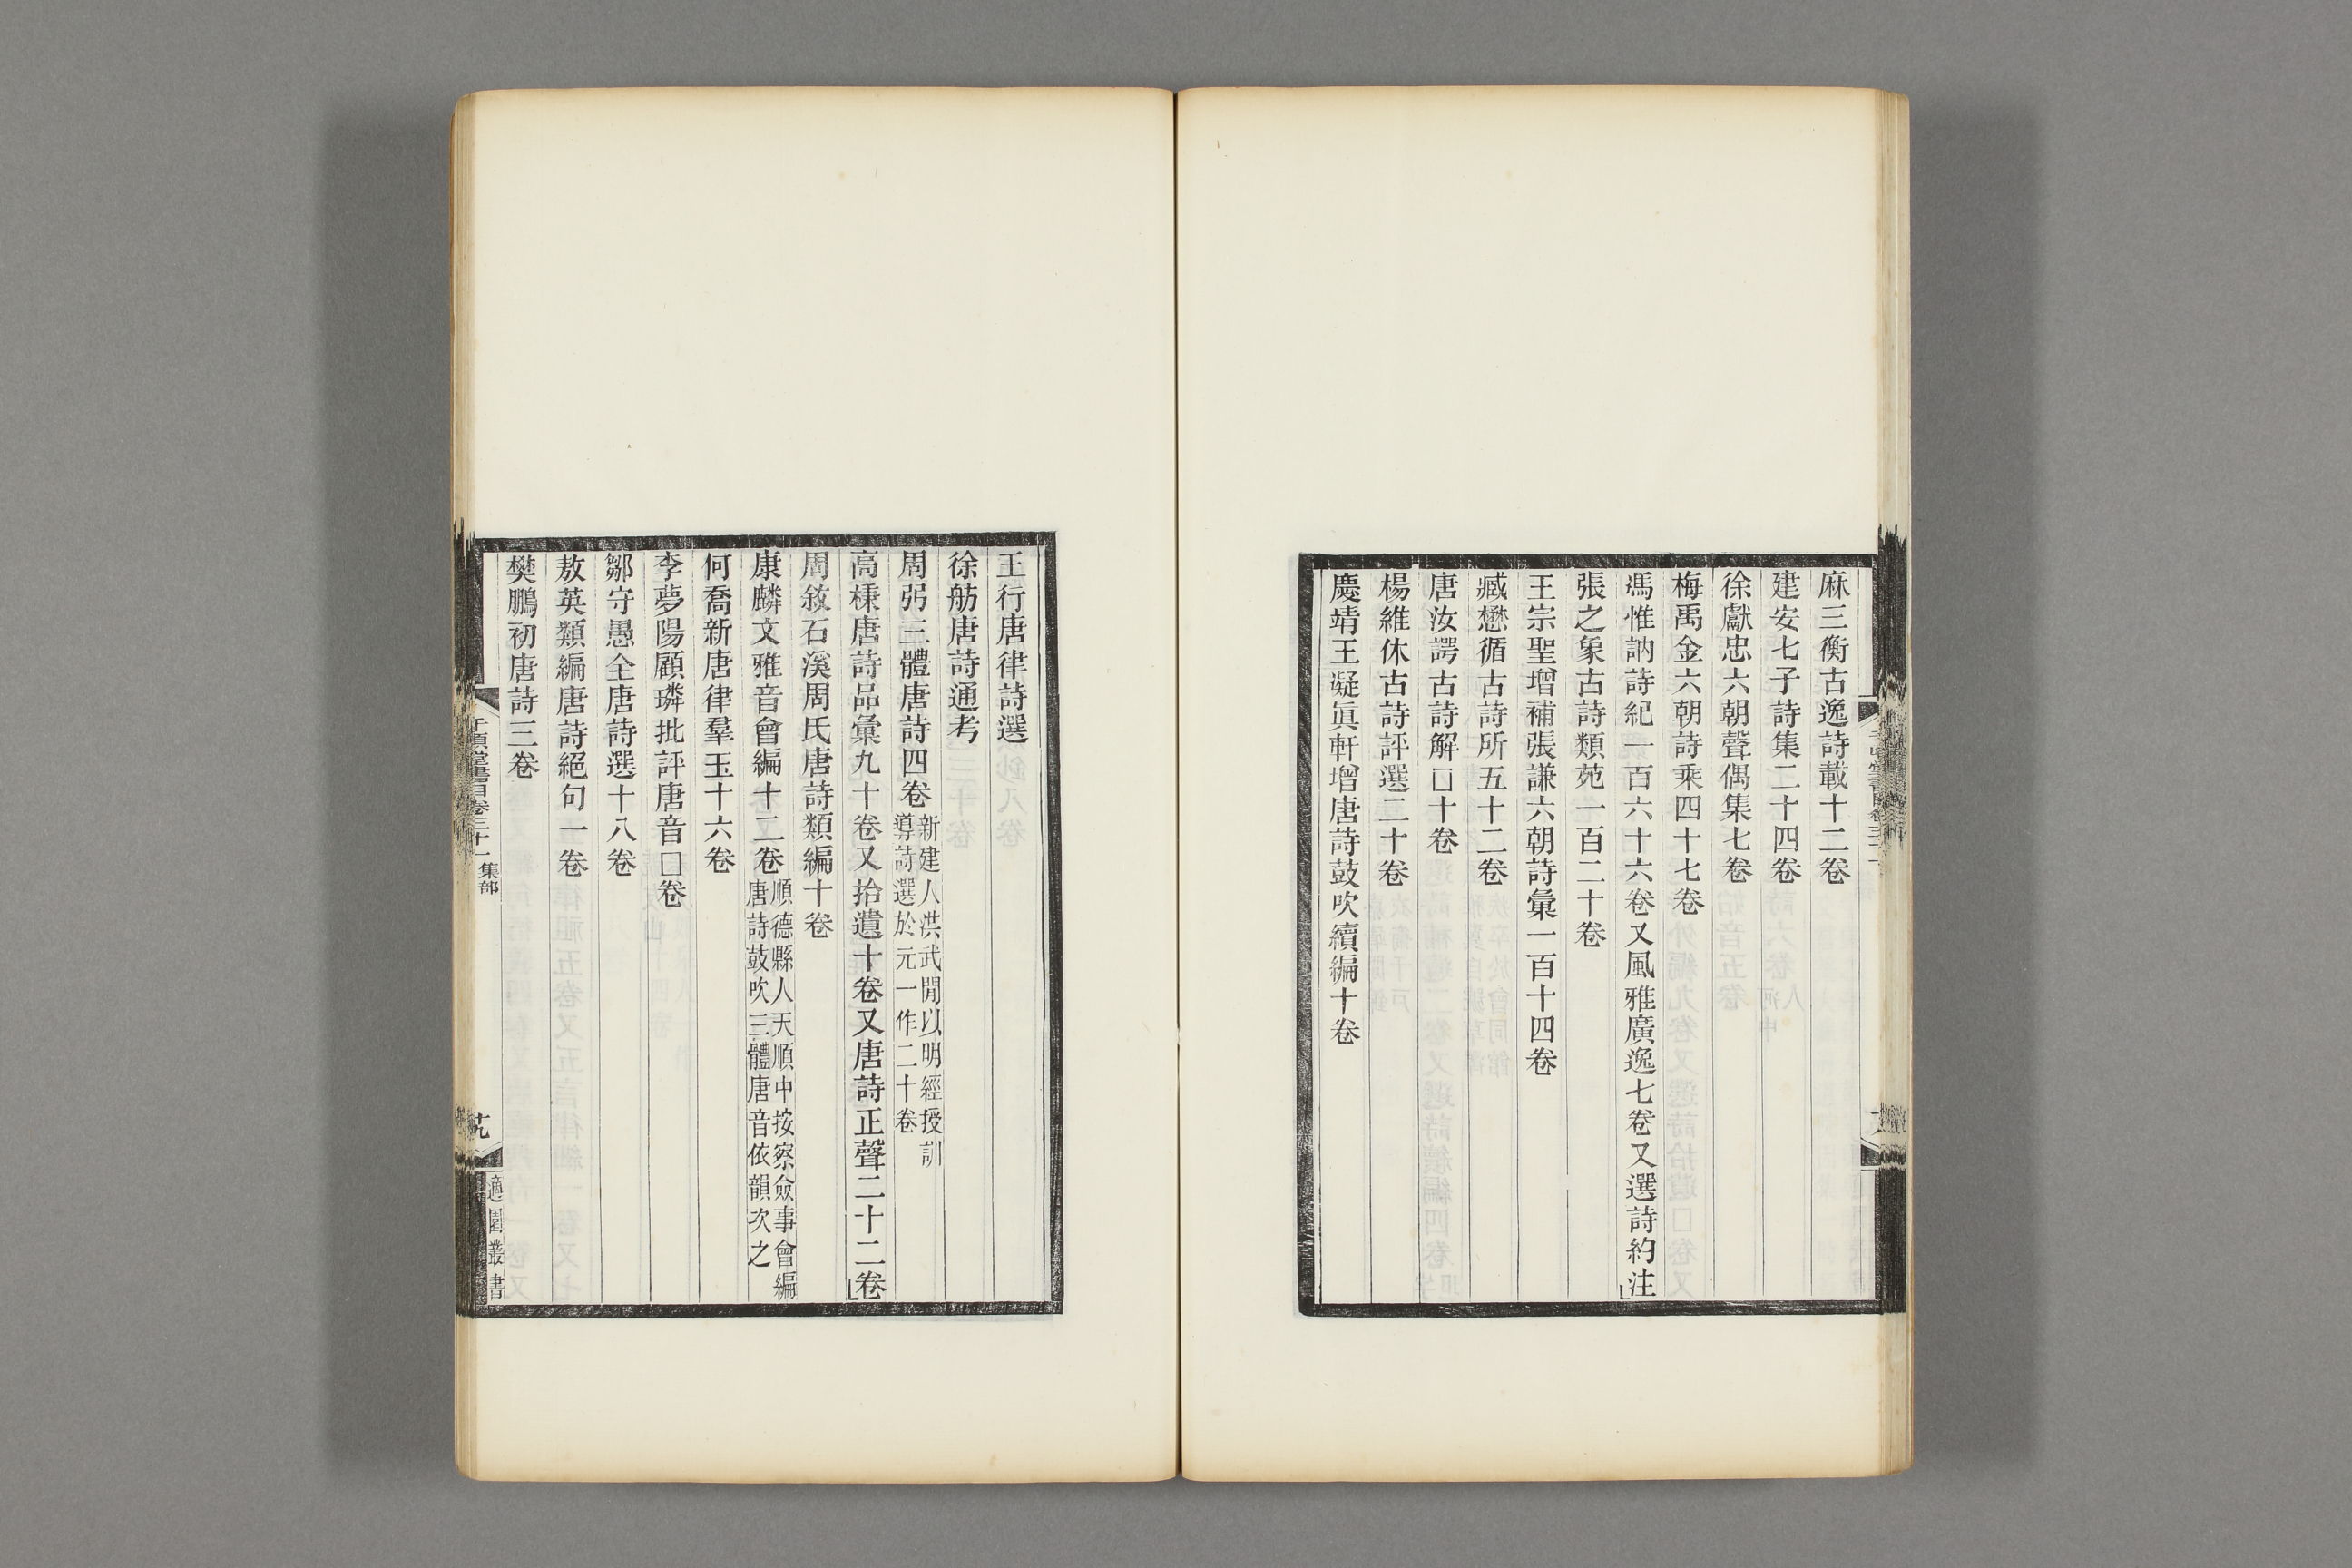 麻三衡古逸詩載十二卷
建安七子詩集二十四卷
徐獻忠六朝聲偶集七卷
梅禹金六朝詩乘四十七卷
馮惟訥詩紀一百六十六卷又風雅廣逸七卷又選詩約注
張之象古詩類苑一百二十卷
王宗聖增補張謙六朝詩彙一百十四卷
臧懋循古詩所五十二卷
唐汝諤古詩解□十卷
楊維休古詩評選二十卷
慶靖王凝眞軒增唐詩鼓吹續編十卷
王行唐律詩選
徐舫唐詩通考
周弼三體唐詩四卷
新建人洪武閒以明經授訓
導詩選於元一作二十卷
高棅唐詩品彙九十卷又拾遺十卷又唐詩正聲二十二卷
周敘石溪周氏唐詩類編十卷
康麟文雅音會編十二卷
順德縣人天順中按察僉事會編
唐詩鼓吹三體唐音依韻次之
何喬新唐律羣玉十六卷
李夢陽顧璘批評唐音□卷
鄒守愚全唐詩選十八卷
敖英類編唐詩絕句一卷
樊鵬初唐詩三卷
千頃堂書目卷三十一
集部
適園叢書